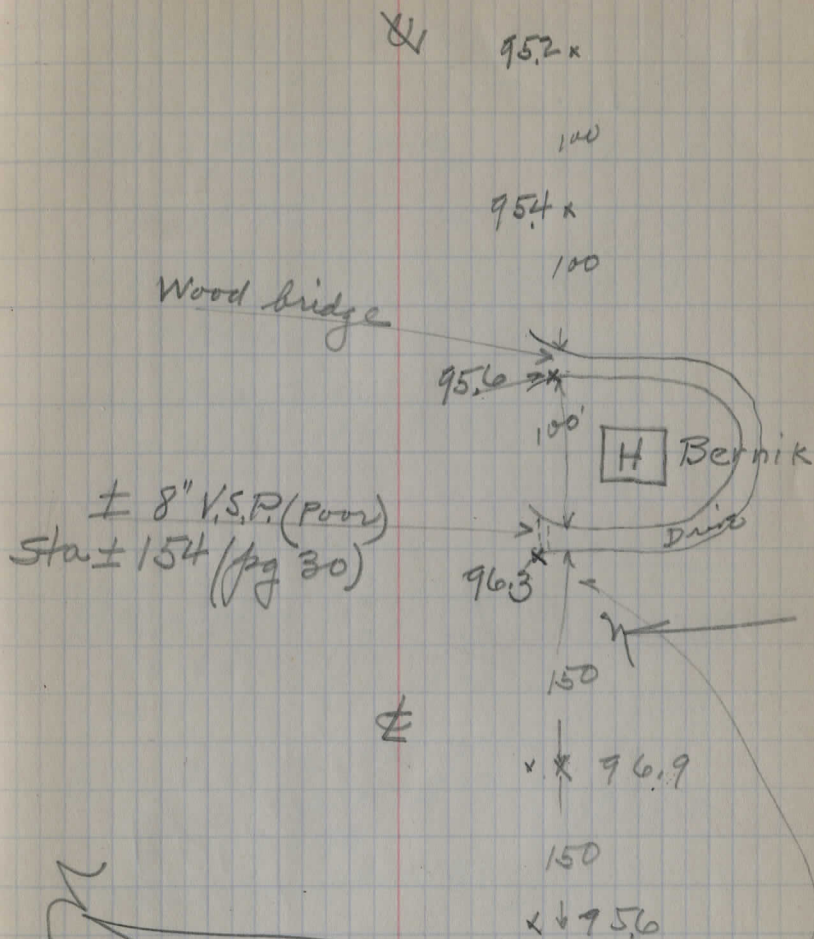 95.2 x
100
95.4 x
100
Wood bridge
95.6
100'
H Bernik
± 8" V.S.P. (poor)
Drive
Sta ± 154 (pg 30)
96.3
N
150
℄
x x 96.9
150
x 95.6